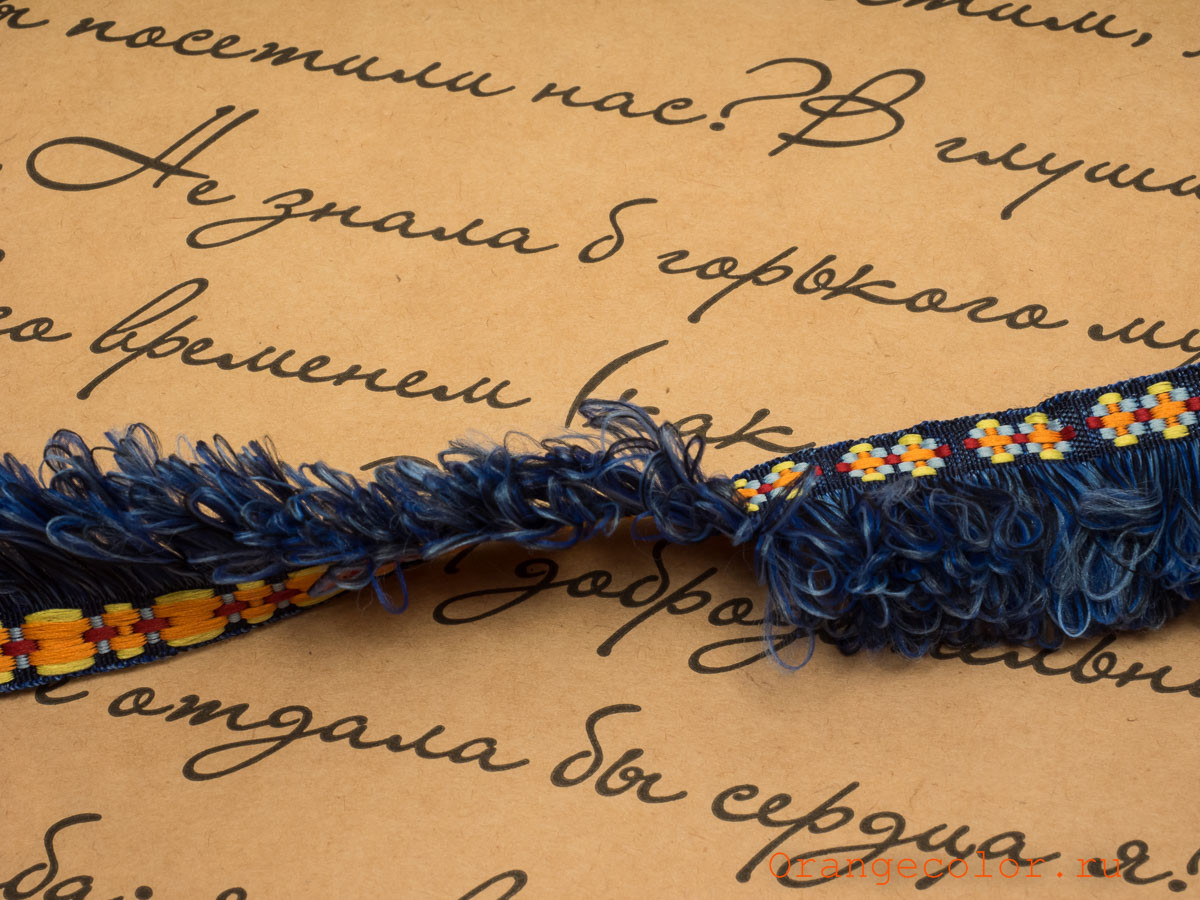 посетили нас? В глуши
Не знала б горького
временем (как
отдала бы сердца я!
Orangecolor.ru